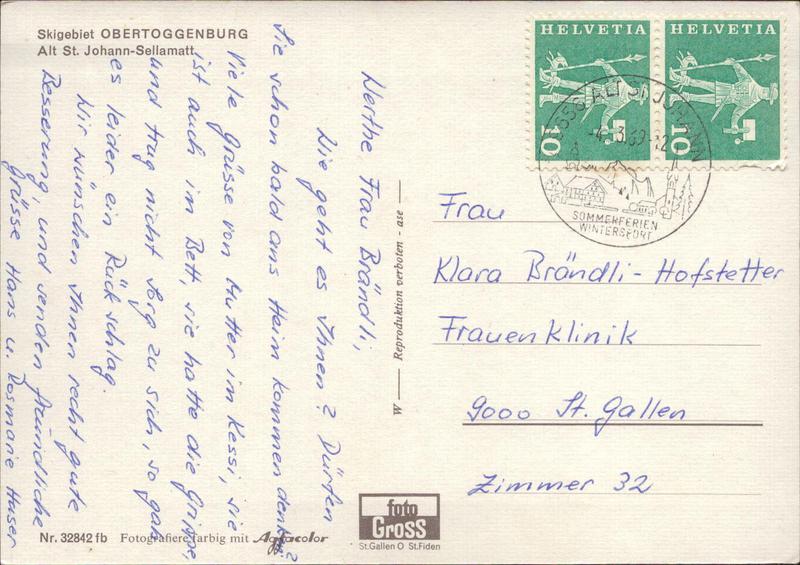 Skigebiet OBERTOGGENBURG
Alt St. Johann-Sellamatt
Werthe Frau Brändli,
Wie geht es Ihnen? Dürfen
Sie schon bald ans Heim kommen denken?
Viele Grüsse von Mutter im Kessi, sie
ist auch im Bett, sie hatte die Grippe,
und trug nicht Sorg zu sich, so gab
es leider ein Rückschlag.
Wir wünschen Ihnen recht gute
Besserung, und senden freundliche
Grüsse Hans u. Rosmarie Huser
Nr. 32842 fb Fotografiere farbig mit Agfacolor
W Reproduktion verboten - ase
foto
GROSS
St.Gallen O St.Fiden
HELVETIA HELVETIA
10 10
9656 ALT ST. JOHANN
-4.-3.69-12
SOMMERFERIEN
WINTERSPORT
Frau
Klara Brändli-Hofstetter
Frauenklinik
9000 St. Gallen
Zimmer 32